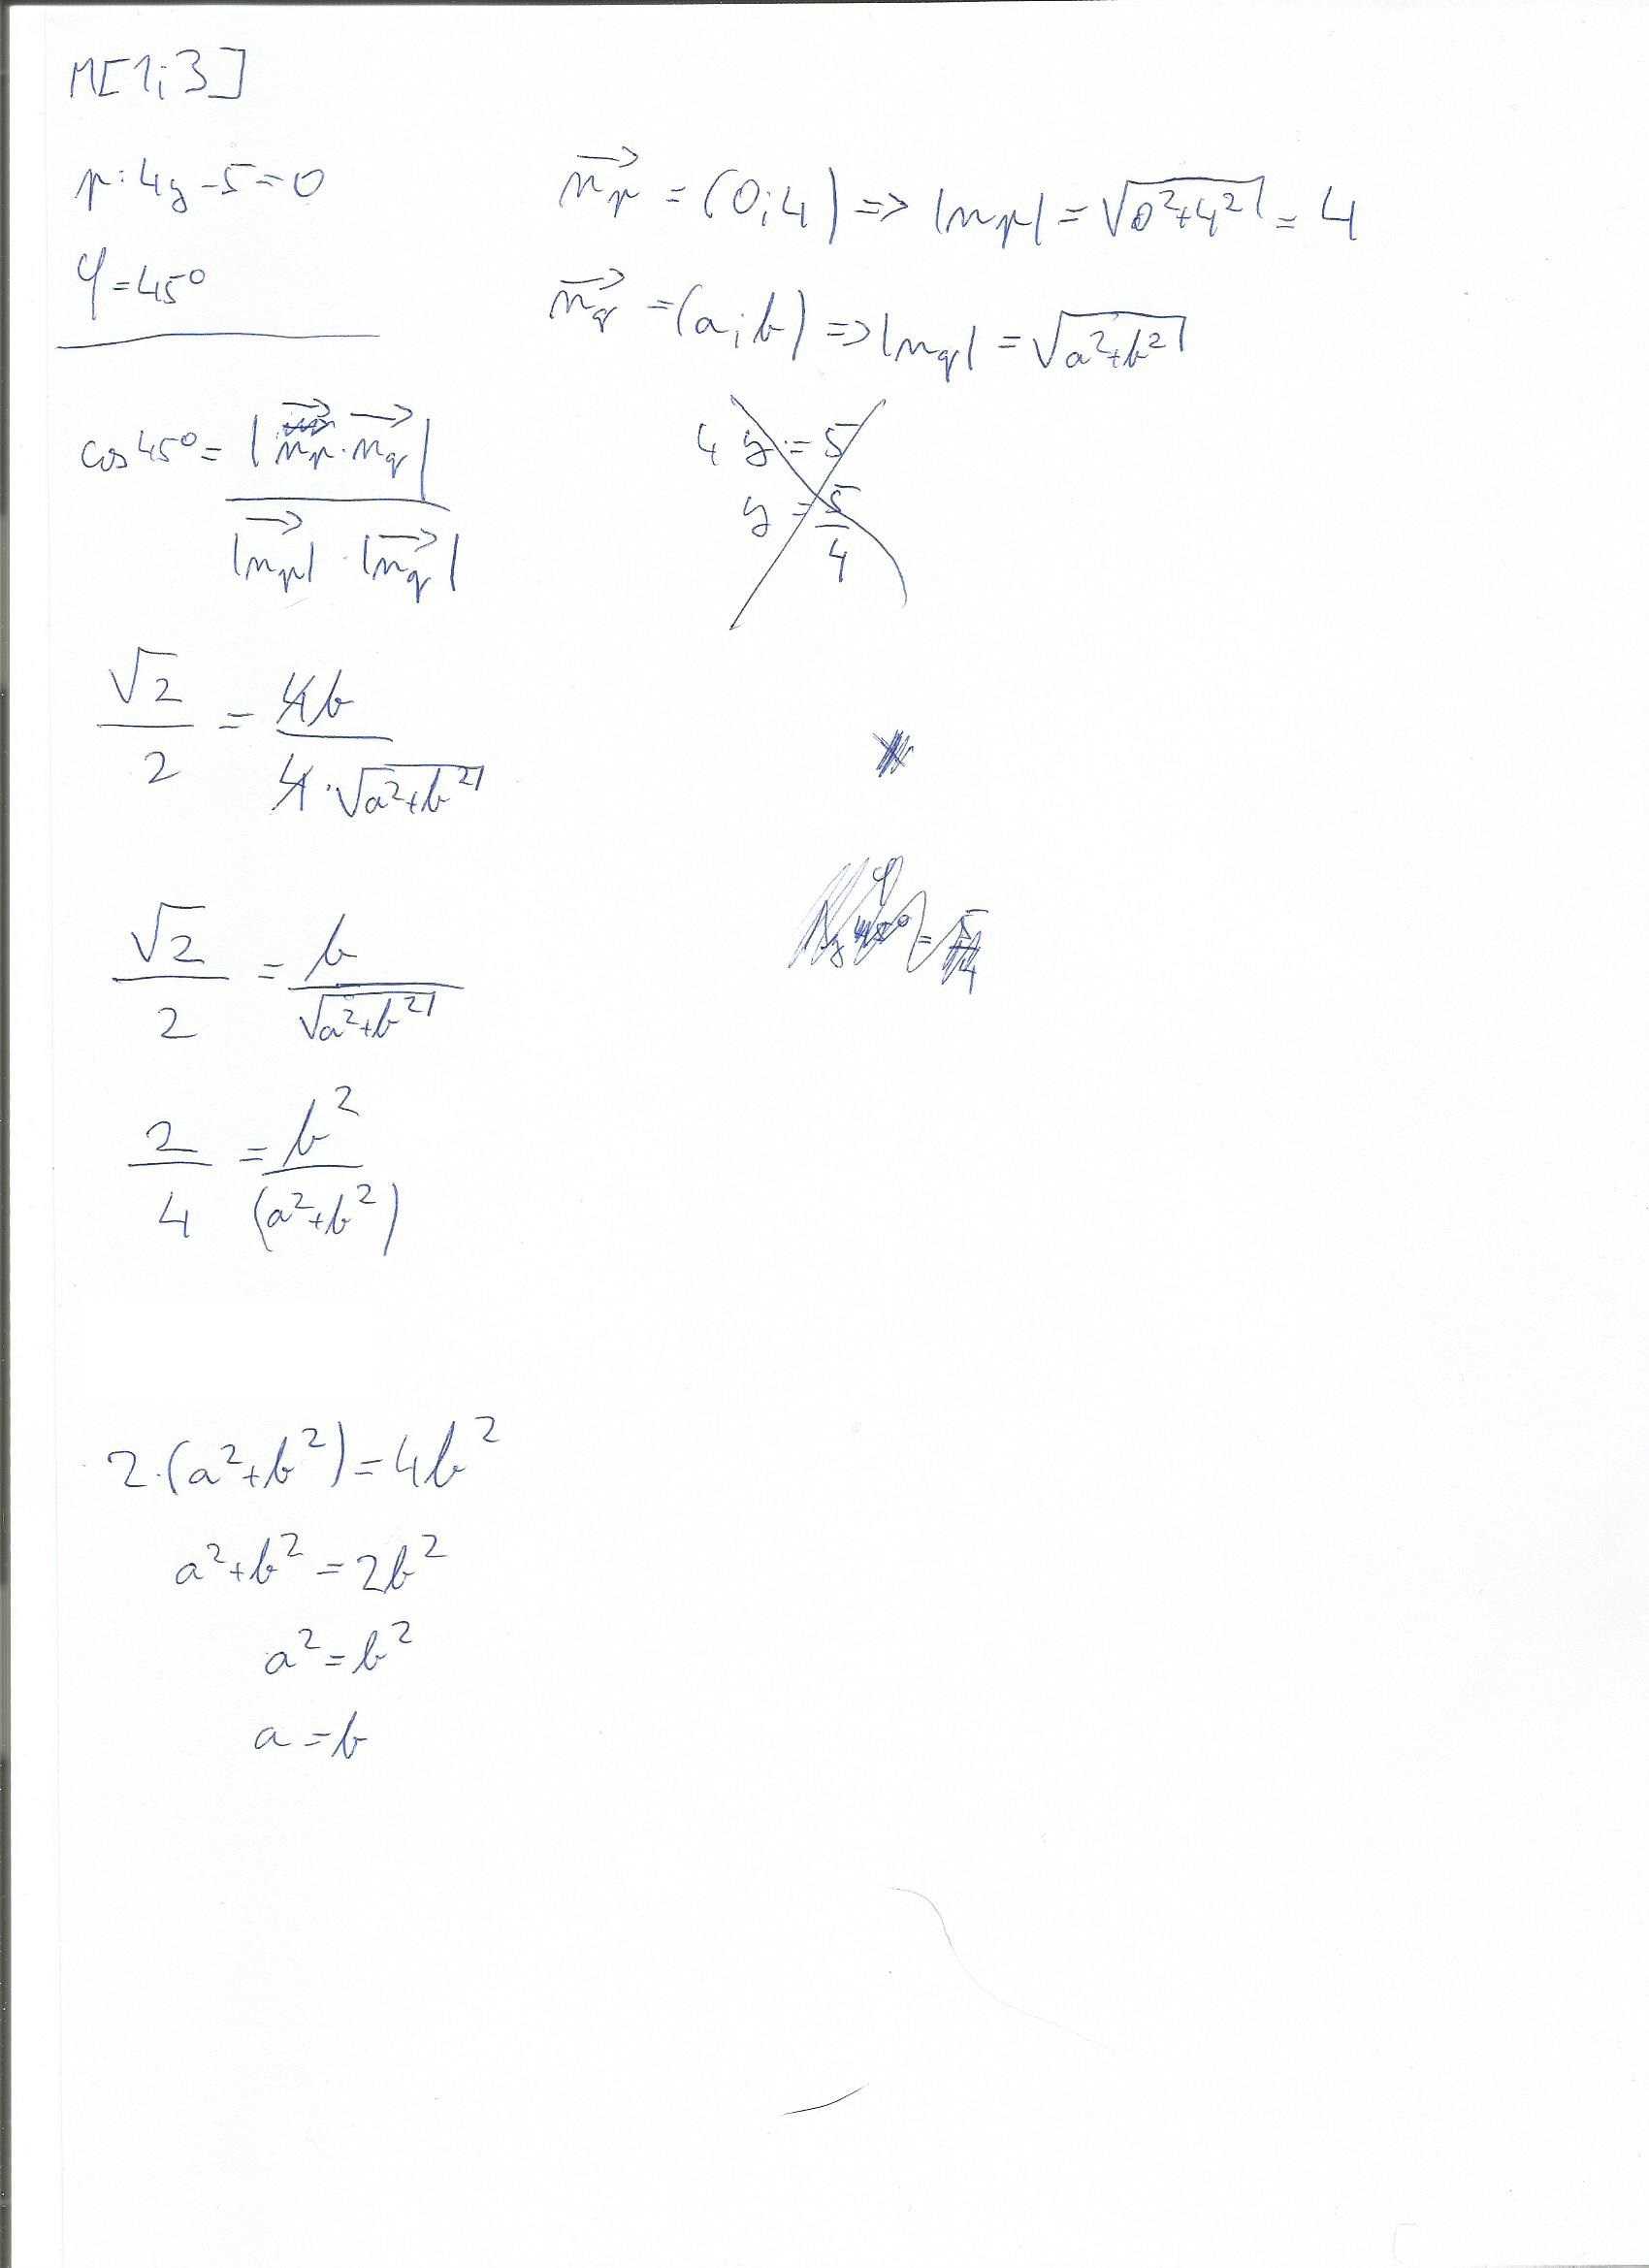 M[1;3]
p: 4y - 5 = 0
φ = 45°
n⃗p = (0;4) => |np| = √(0²+4²) = 4
n⃗q = (a;b) => |nq| = √(a²+b²)
cos 45° = |n⃗p · n⃗q| / |n⃗p| · |n⃗q|
4y = 5
y = 5/4
√2/2 = 4b / 4·√(a²+b²)
√2/2 = b / √(a²+b²)
2/4 = b² / (a²+b²)
2·(a²+b²) = 4b²
a²+b² = 2b²
a² = b²
a = b